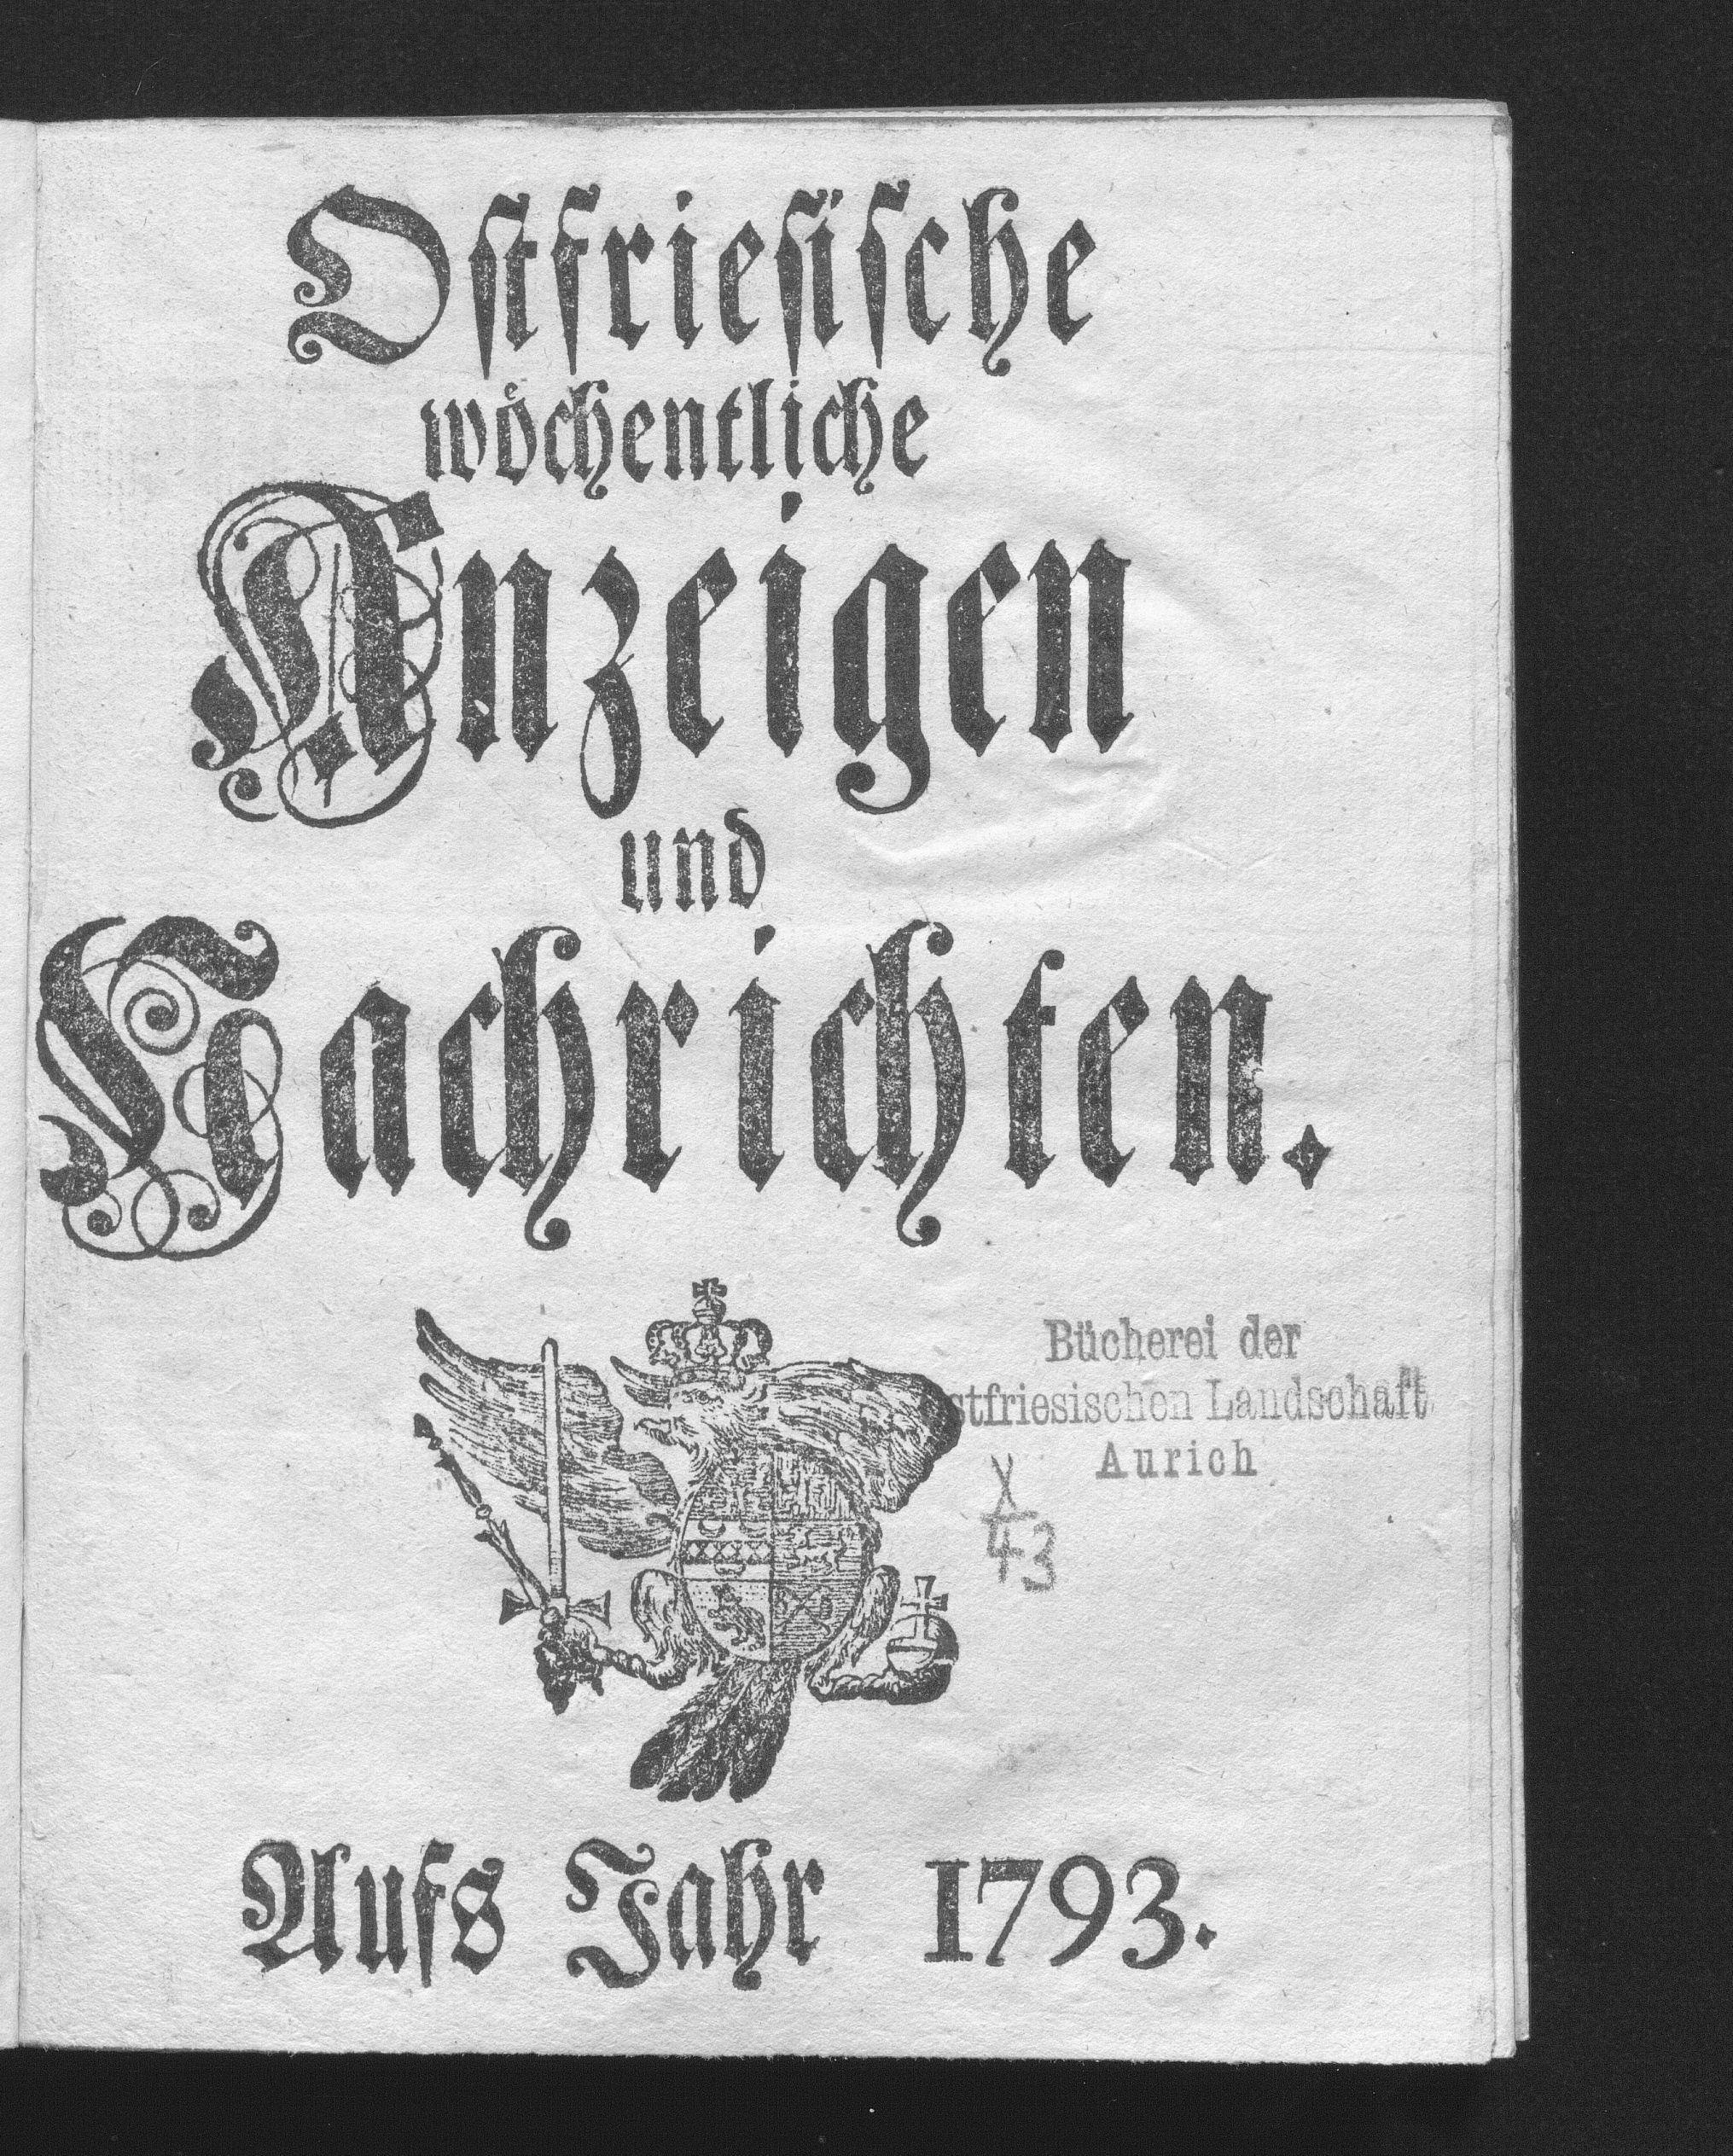 Oſtfrieſiſche
woͤchentliche
Anzeigen
und
Nachrichten.
Bücherei der
stfriesischen Landschaft
Aurich
X
43
Aufs Jahr 1793.